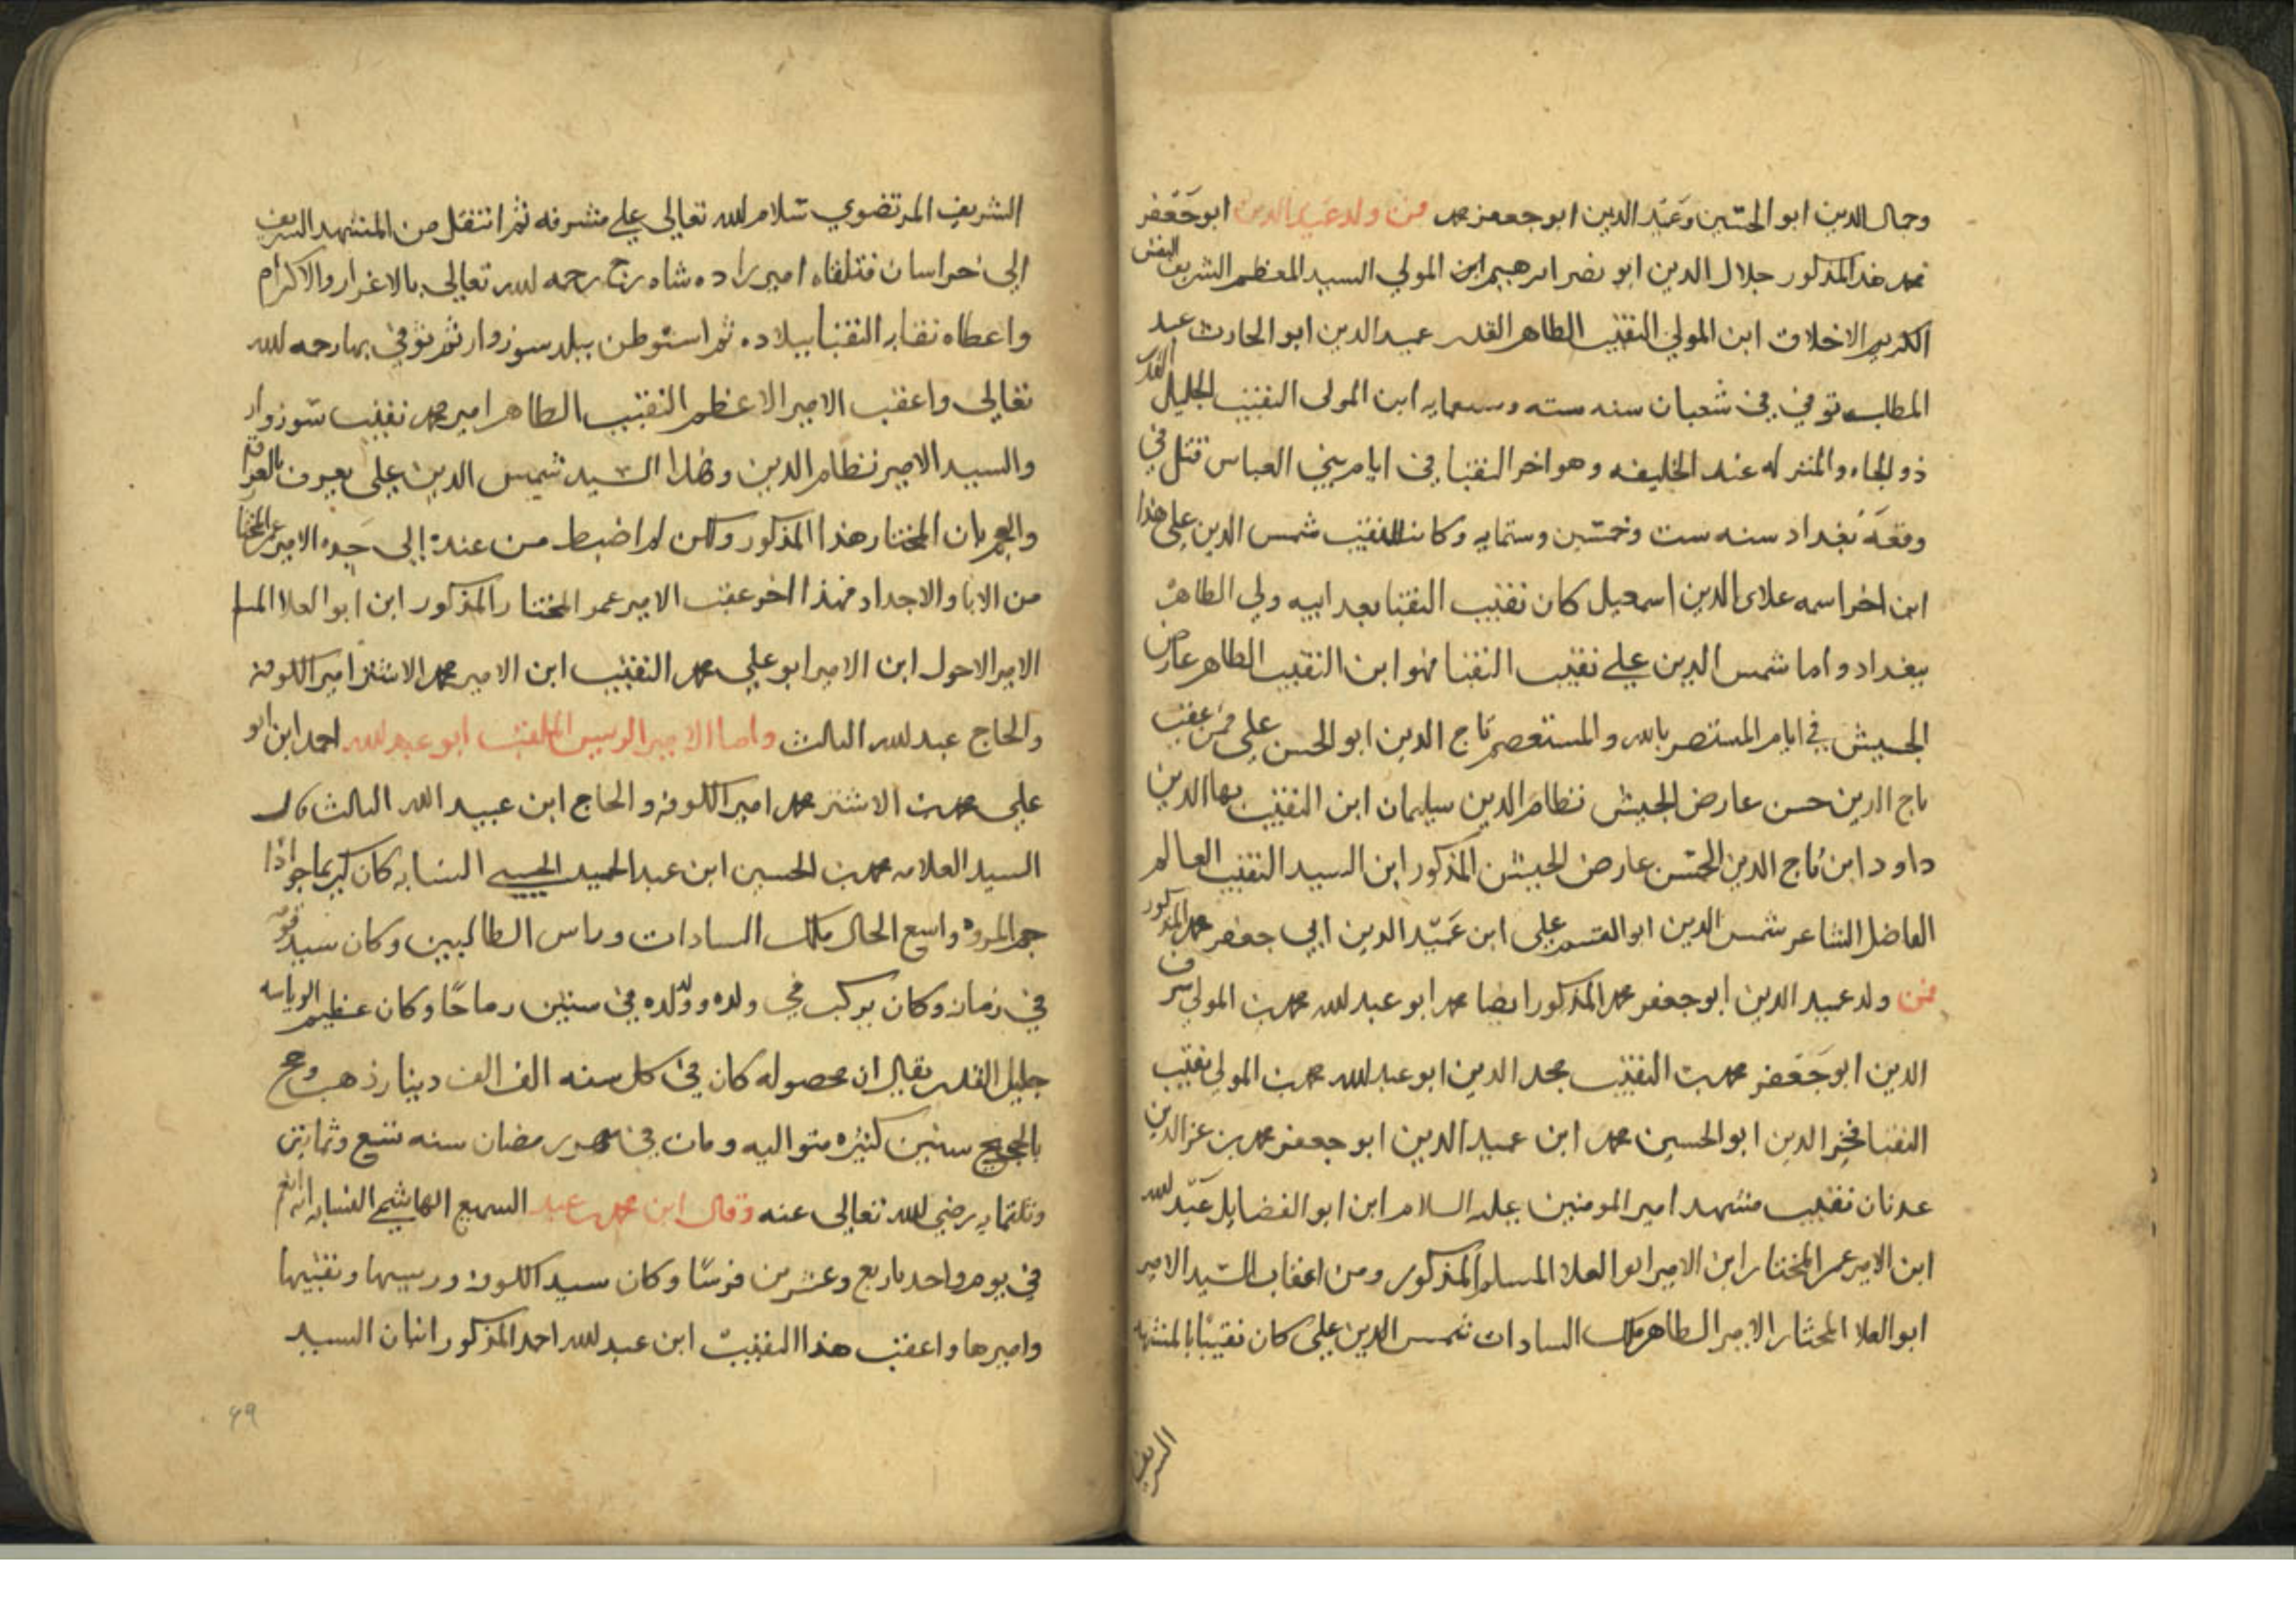 وجمال الدين ابو الحسين وعميد الدين ابو جعفر محمد فمن ولد عميد الدين ابو جعفر
محمد هذا المذكور جلال الدين ابو نصر ابرهيم ابن المولي السيد المعظم الشريف النفس
الكريم الاخلاق ابن المولي النقيب الطاهر القدر عميد الدين ابو الحارث عبد
المطلب توفي في شعبان سنه سته وسبعمايه ابن المولى النقيب الجليل القدر
ذو الجاه والمنزله عند الخليفه وهو اخر النقبا في ايام بني العباس قتل في
وقعة بغداد سنه ست وخمسين وستمايه وكان للنقيب شمس الدين علي هذا
ابن اخر اسمه علاى الدين اسمعيل كان نقيب النقبا بعد ابيه ولي الطاهر
ببغداد واما شمس الدين علي نقيب النقبا فهو ابن النقيب الطاهر عارض
الجيش في ايام المستنصر بالله والمستعصم تاج الدين ابو الحسن علي فمن عقب
تاج الدين حسن عارض الجيش نظام الدين سليمان ابن النقيب بها الدين
داود ابن تاج الدين الحسن عارض الجيش المذكور ابن السيد النقيب العالم
الفاضل الشاعر شمس الدين ابو القسم علي ابن عميد الدين ابي جعفر محمد المذكور
فمن ولد عميد الدين ابو جعفر محمد المذكور ايضا محمد ابو عبد لله محمد بن المولي شرف
الدين ابو جعفر محمد بن النقيب مجد الدين ابو عبد لله محمد بن المولي نقيب
النقبا فخر الدين ابو الحسين محمد ابن عميد الدين ابو جعفر محمد بن عز الدين
عدنان نقيب مشهد امير المومنين عليه السلام ابن ابو الفضايل عبد لله
ابن الامير عمر المختار ابن الامير ابو العلا المسلم المذكور ومن اعقاب السيد الامير
ابو العلا المختار الامير الطاهر ملك السادات شمس الدين علي كان نقيبا بالمشهد
الشريف
الشريف المرتضوي سلام لله تعالي علي مشرفه ثم انتقل من المشهد الشريف
الي خراسان فتلقاه امير زاده شاه رخ رحمه لله تعالي بالاعزار والاكرام
واعطاه نقابه النقبا ببلاده ثم استوطن ببلد سبزوار ثم توفي بها رحمه لله
تعالي واعقب الامير الاعظم النقيب الطاهر امير محمد نقيب سبزوار
والسيد الامير نظام الدين وهذا السيد شمس الدين علي يعرف بالعراق
والعجم بان المختار هذا المذكور ولكن لم اضبط من عنده الي جده الامير عمر المختار
من الابا والاجداد فهذا اخر عقب الامير عمر المختار المذكور ابن ابو العلا المسلم
الامير الاحول ابن الامير ابو علي محمد النقيب ابن الامير محمد الاشتر امير الكوفه
والحاج عبد لله الثالث واما الامير الرييس الملقب ابو عبد لله احمد ابن ابو
علي محمد بن الاشتر محمد امير الكوفه والحاج ابن عبيد الله الثالث قال
السيد العلامه محمد بن الحسين ابن عبد الحميد الحسيني النسابه كان كريما جوادا
جم المروه واسع الحال ملك السادات وراس الطالبيين وكان سيد قومه
في زمانه وكان يركب في ولده وولد ولده في ستين رماحا وكان عظيم الرياسه
جليل القدر يقال ان محصوله كان في كل سنه الف الف دينار ذهب وحج
بالحجيج سنين كثيره متواليه ومات في شهر رمضان سنه تسع وثمانين
وثلثمايه رضي لله تعالى عنه وقال ابن محمد بن عبد السميع الهاشمي النسابه انه انعم
في يوم واحد باربع وعشرين فرسا وكان سيد الكوفه ورييسها ونقيبها
واميرها واعقب هذا النقيب ابن عبد لله احمد المذكور اثنان السيد
٤٩